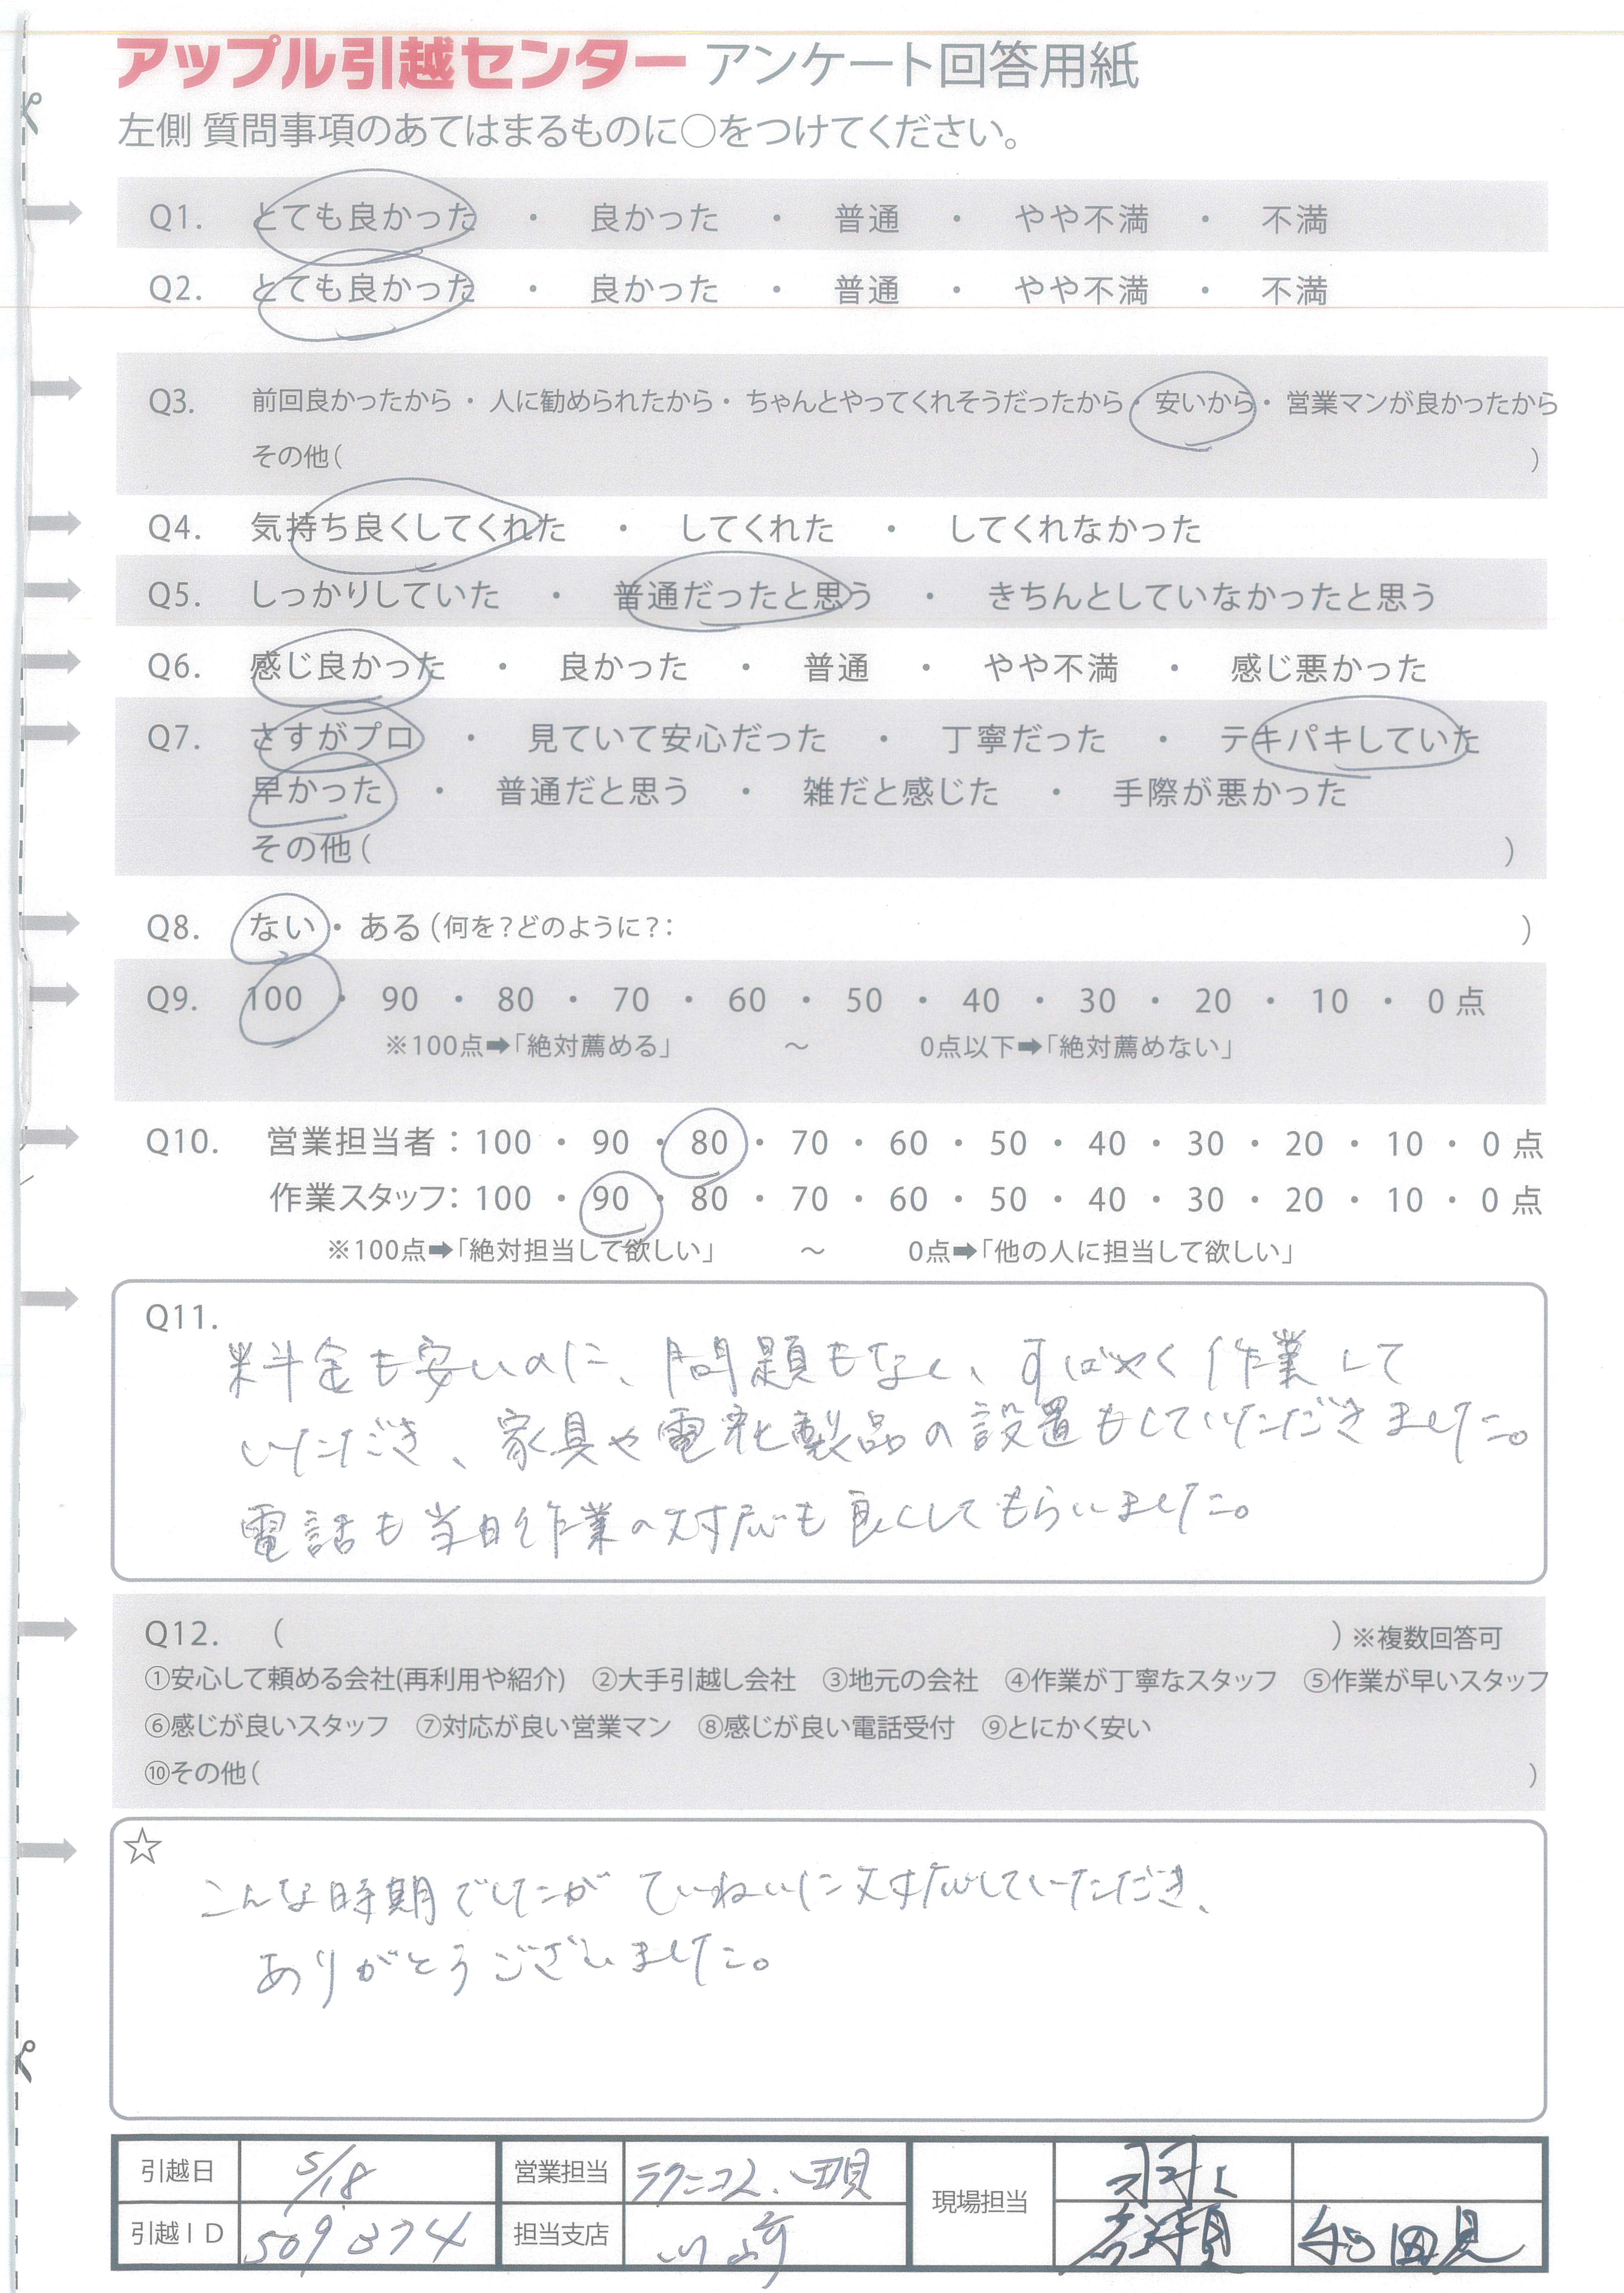 アップル引越センター アンケート回答用紙
左側 質問事項のあてはまるものに○をつけてください。
Q1. とても良かった ・ 良かった ・ 普通 ・ やや不満 ・ 不満
Q2. とても良かった ・ 良かった ・ 普通 ・ やや不満 ・ 不満
Q3. 前回良かったから・人に勧められたから・ちゃんとやってくれそうだったから・安いから・営業マンが良かったから
その他( )
Q4. 気持ち良くしてくれた ・ してくれた ・ してくれなかった
Q5. しっかりしていた ・ 普通だったと思う ・ きちんとしていなかったと思う
Q6. 感じ良かった ・ 良かった ・ 普通 ・ やや不満 ・ 感じ悪かった
Q7. さすがプロ ・ 見ていて安心だった ・ 丁寧だった ・ テキパキしていた
早かった ・ 普通だと思う ・ 雑だと感じた ・ 手際が悪かった
その他( )
Q8. ない・ある(何を?どのように?: )
Q9. 100 ・ 90 ・ 80 ・ 70 ・ 60 ・ 50 ・ 40 ・ 30 ・ 20 ・ 10 ・ 0点
※100点➡「絶対薦める」 ~ 0点以下➡「絶対薦めない」
Q10. 営業担当者:100 ・ 90 ・ 80 ・ 70 ・ 60 ・ 50 ・ 40 ・ 30 ・ 20 ・ 10 ・ 0点
作業スタッフ:100 ・ 90 ・ 80 ・ 70 ・ 60 ・ 50 ・ 40 ・ 30 ・ 20 ・ 10 ・ 0点
※100点➡「絶対担当して欲しい」 ~ 0点➡「他の人に担当して欲しい」
Q11.
料金も安いのに、問題もなく、すばやく作業して
いただき、家具や電化製品の設置もしていただきました。
電話も当日作業の対応も良くしてもらいました。
Q12. ( )※複数回答可
①安心して頼める会社(再利用や紹介) ②大手引越し会社 ③地元の会社 ④作業が丁寧なスタッフ ⑤作業が早いスタッフ
⑥感じが良いスタッフ ⑦対応が良い営業マン ⑧感じが良い電話受付 ⑨とにかく安い
⑩その他( )
☆
こんな時期でしたが ていねいに対応していただき、
ありがとうございました。
引越日 5/18 営業担当 ラクニコス. 現場担当
引越ID 509374 担当支店 川崎